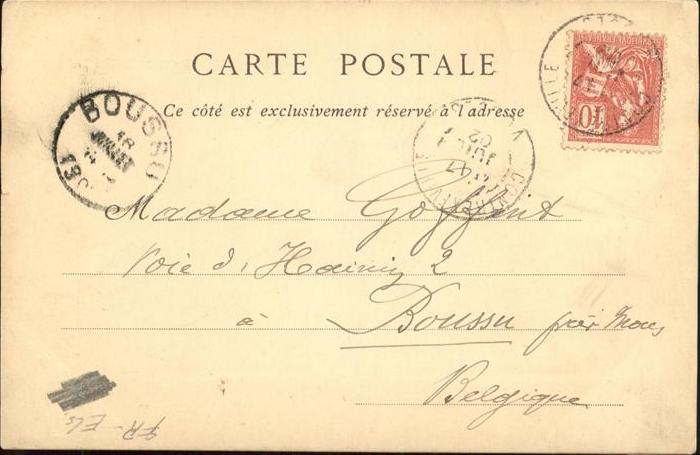 CARTE POSTALE
Ce côté est exclusivement réservé à l'adresse
BOUSSU
18
JUILLET
10
CONTREXEVILLE
02
Madame Goffint
Voie d'Hainin 2
à Boussu près Mons
Belgique
FR-EG